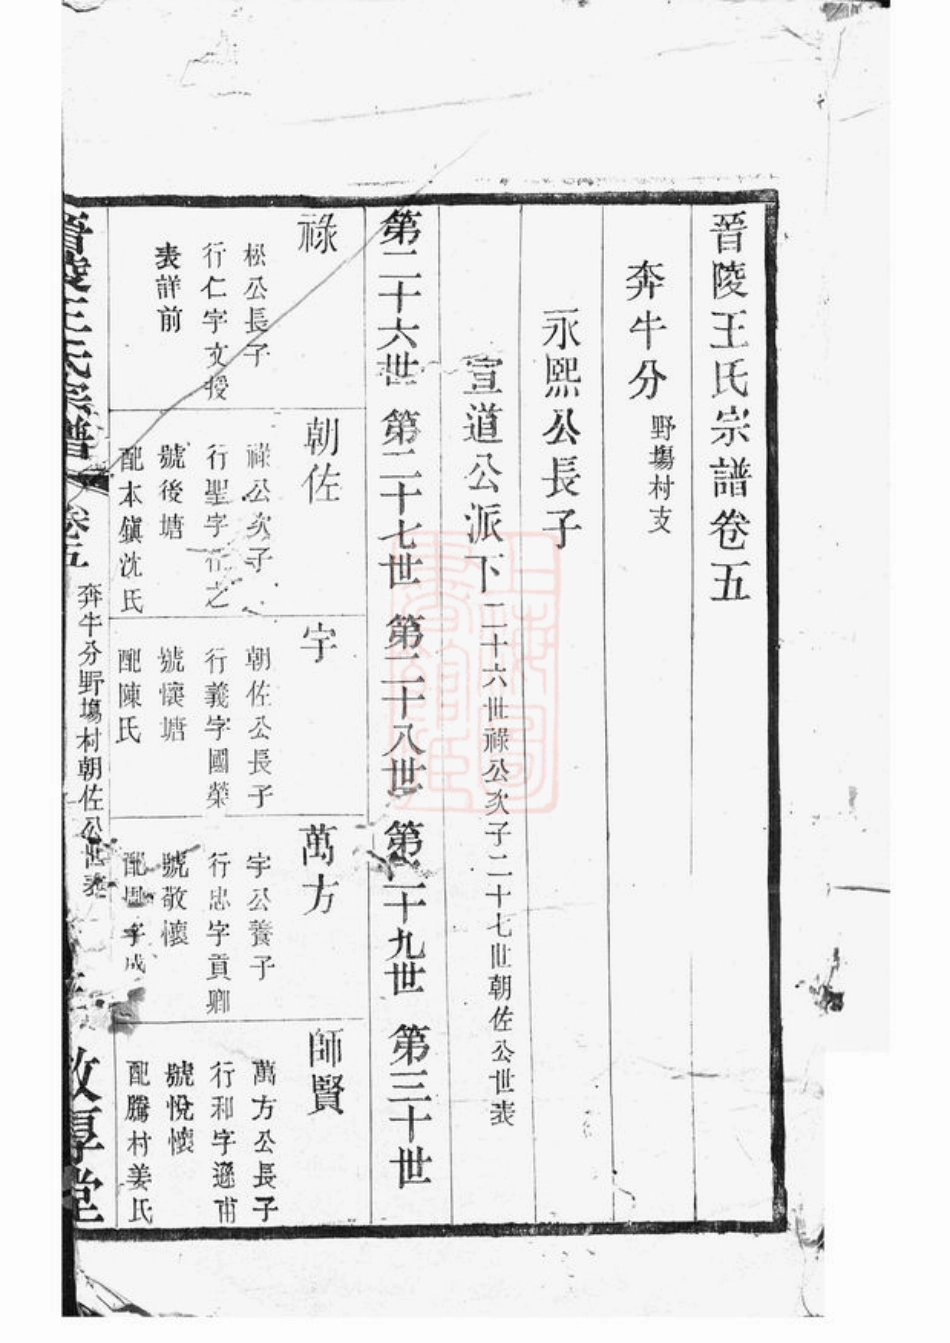 晉陵王氏宗譜卷五
奔牛分 野塲村支
永熙公長子
宣道公派下 二十六世祿公次子二十七世朝佐公世表
第二十六世 第二十七世 第二十八世 第二十九世 第三十世
祿
松公長子
行仁字文授
表詳前
朝佐
祿公次子
行聖字 之
號後塘
配本鎭沈氏
宇
朝佐公長子
行義字國榮
號懷塘
配陳氏
萬方
宇公養子
行忠字貢卿
號敬懷
配
師賢
萬方公長子
行和字遜甫
號悅懷
配騰村姜氏
晉陵王氏宗譜
卷五
奔牛分野塲村朝佐公世表
敦厚堂